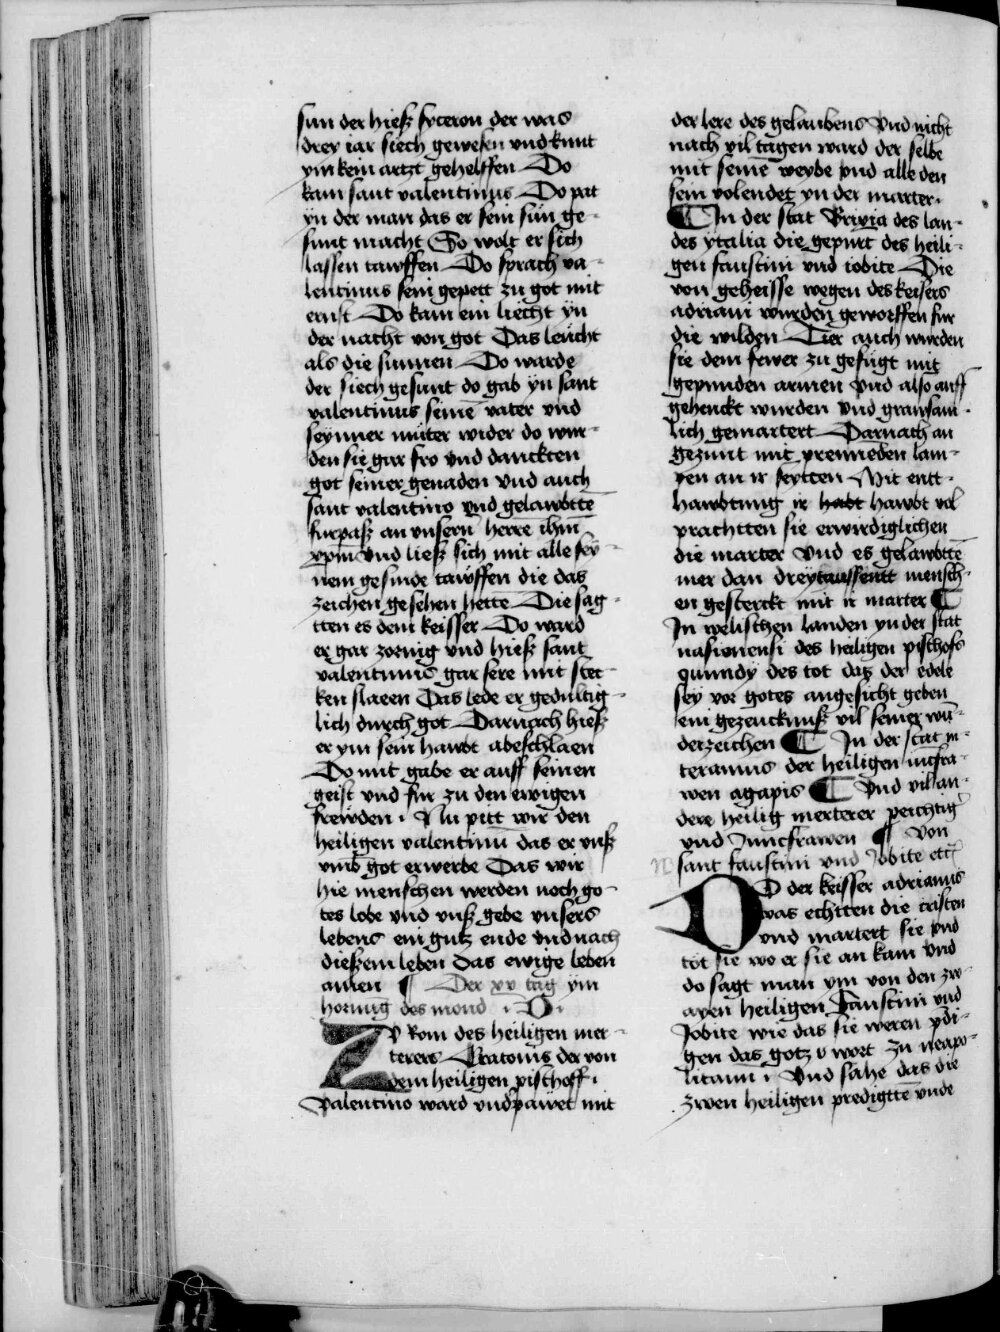 sun der hieß syceron der was
drey iar siech gewesen vnd kunt
ym kein artzt gehelffen Do
kam sant valentinus Do pat
yn der man das er sein sun ge-
sunt macht So wolt er sich
lassen tawffen Do sprach va-
lentinus sein gepett zu got mit
ernst Do kam ein liecht yn
der nacht von got Das leucht
als die sunnen Do warde
der siech gesunt do gab yn sant
valentinus seinē vater vnd
seynner muter wider do wur-
den sie gar fro vnd danckten
got seiner genaden vnd auch
sant valentino vnd gelawbtē
furpaß an vnsern herre ihm̄
xp̄m vnd ließ sich mit alle sey-
nem gesinde tawffen die das
zeichen gesehen hette Die sag-
tten es dem keisser Do ward
er gar zornig vnd hieß sant
valentinus gar sere mit stec-
ken slaeen Das lede er gedultig-
lich durch got Darnach hieß
er ym sein hawbt abeschlaen
Do mit gabe er auff seinen
geist vnd fur zu den ewigen
frewden . Nu pitt wir den
heiligen valentinū das er vnß
vmb got erwerbe Das wir
hie menschen werden noch go-
tes lobe vnd vnß gebe vnsers
lebens ein gutz ende vnd nach
dießem leben das ewige leben
amen ¶ Der xv tag ym
hornūg des mond . D .
ZV Rom des heiligen mer-
terers Cratonis der von
dem heiligen pischoff .
Valentino ward vnd pawet mit
der lere des gelaubens Vnd nicht
nach vil tagen ward der selbe
mit seinē weybe vnd alle den
sein volendet yn der marter .
¶ In der stat Brixia des lan-
des ytalia die gepurt des heili-
gen faustini vnd iobite Die
von geheisse wegen des keisers
adriani wurden geworffen fur
die wilden Tier auch wurden
sie dem fewer zu gefugt mit
gepunden armen vnd also auff
gehenckt wurden vnd grawsam-
lich gemartert Darnach an
gezunt mit prenneden lam-
pen an ir seytten Mit entt-
hawbtung ir habt hawbt vol
prachtten sie erwirdiglichen
die marter Vnd es gelawbtē
mer dan dreytaussentt mensch-
en gesterckt mit ir marter ¶
In welischen landen yn der stat
nasionensi des heiligen pischofs
quinidy des tot das der edele
sey vor gotes angesicht geben
ein gezeucknuß vil seiner wū-
derzeichen ¶ In der stat in-
teramnis der heiligen iuncfra-
wen agapis ¶ Vnd vil an-
dere heilig merterer peichtig̉
vnd Juncfrawen ¶ Von
sant faustini vnd Jobite etc̄
DO der keisser adrianus
was echtten die cristen
vnd martert sie vnd
tot sie wo er sie an kam Vnd
do sagt man ym von den zw-
ayen heiligen Faustini vnd
Jobite wie das sie weren pdi-
gen das gotz wort zu neapo-
litanu . Vnd sahe das die
zwen heiligen predigttē vnde